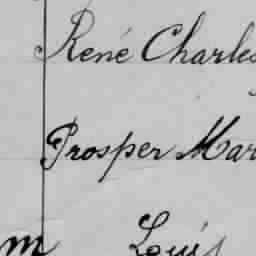 René Charles
Prosper Mar
m Louis